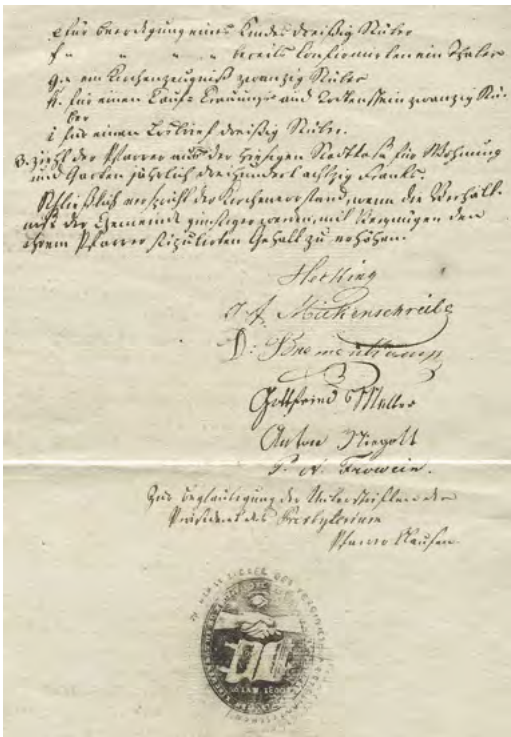 e für Beerdigung eines Kindes dreißig Stüber
f " " " " bereits Confirmirten ein Thaler
g. ein Kirchenzeugniß zwanzig Stüber
h. für einen Tauf- Trauungs- und Todtenschein zwanzig Stü-
ber
i für einen dreißig Stüber.
3. zieht der Pfarrer aus der hiesigen Stadtkasse für Wohnung
und Garten jährlich dreihundert achtzig Franks.
Schließlich verspricht der Kirchenvorstand, wenn die Verhält-
niße der Gemeinde günstiger werden, mit Vergnügen den
ihrem Pfarrer stipulirten Gehalt zu erhöhen.
J. A. Mückenschreibe
D. Bremenkamp
Gottfried Müller
Anton Niegott
P. A. Frowein.
Zur Beglaubigung der Unterschriften der
Präsident des Presbyterium
Pfarrer Clausen.